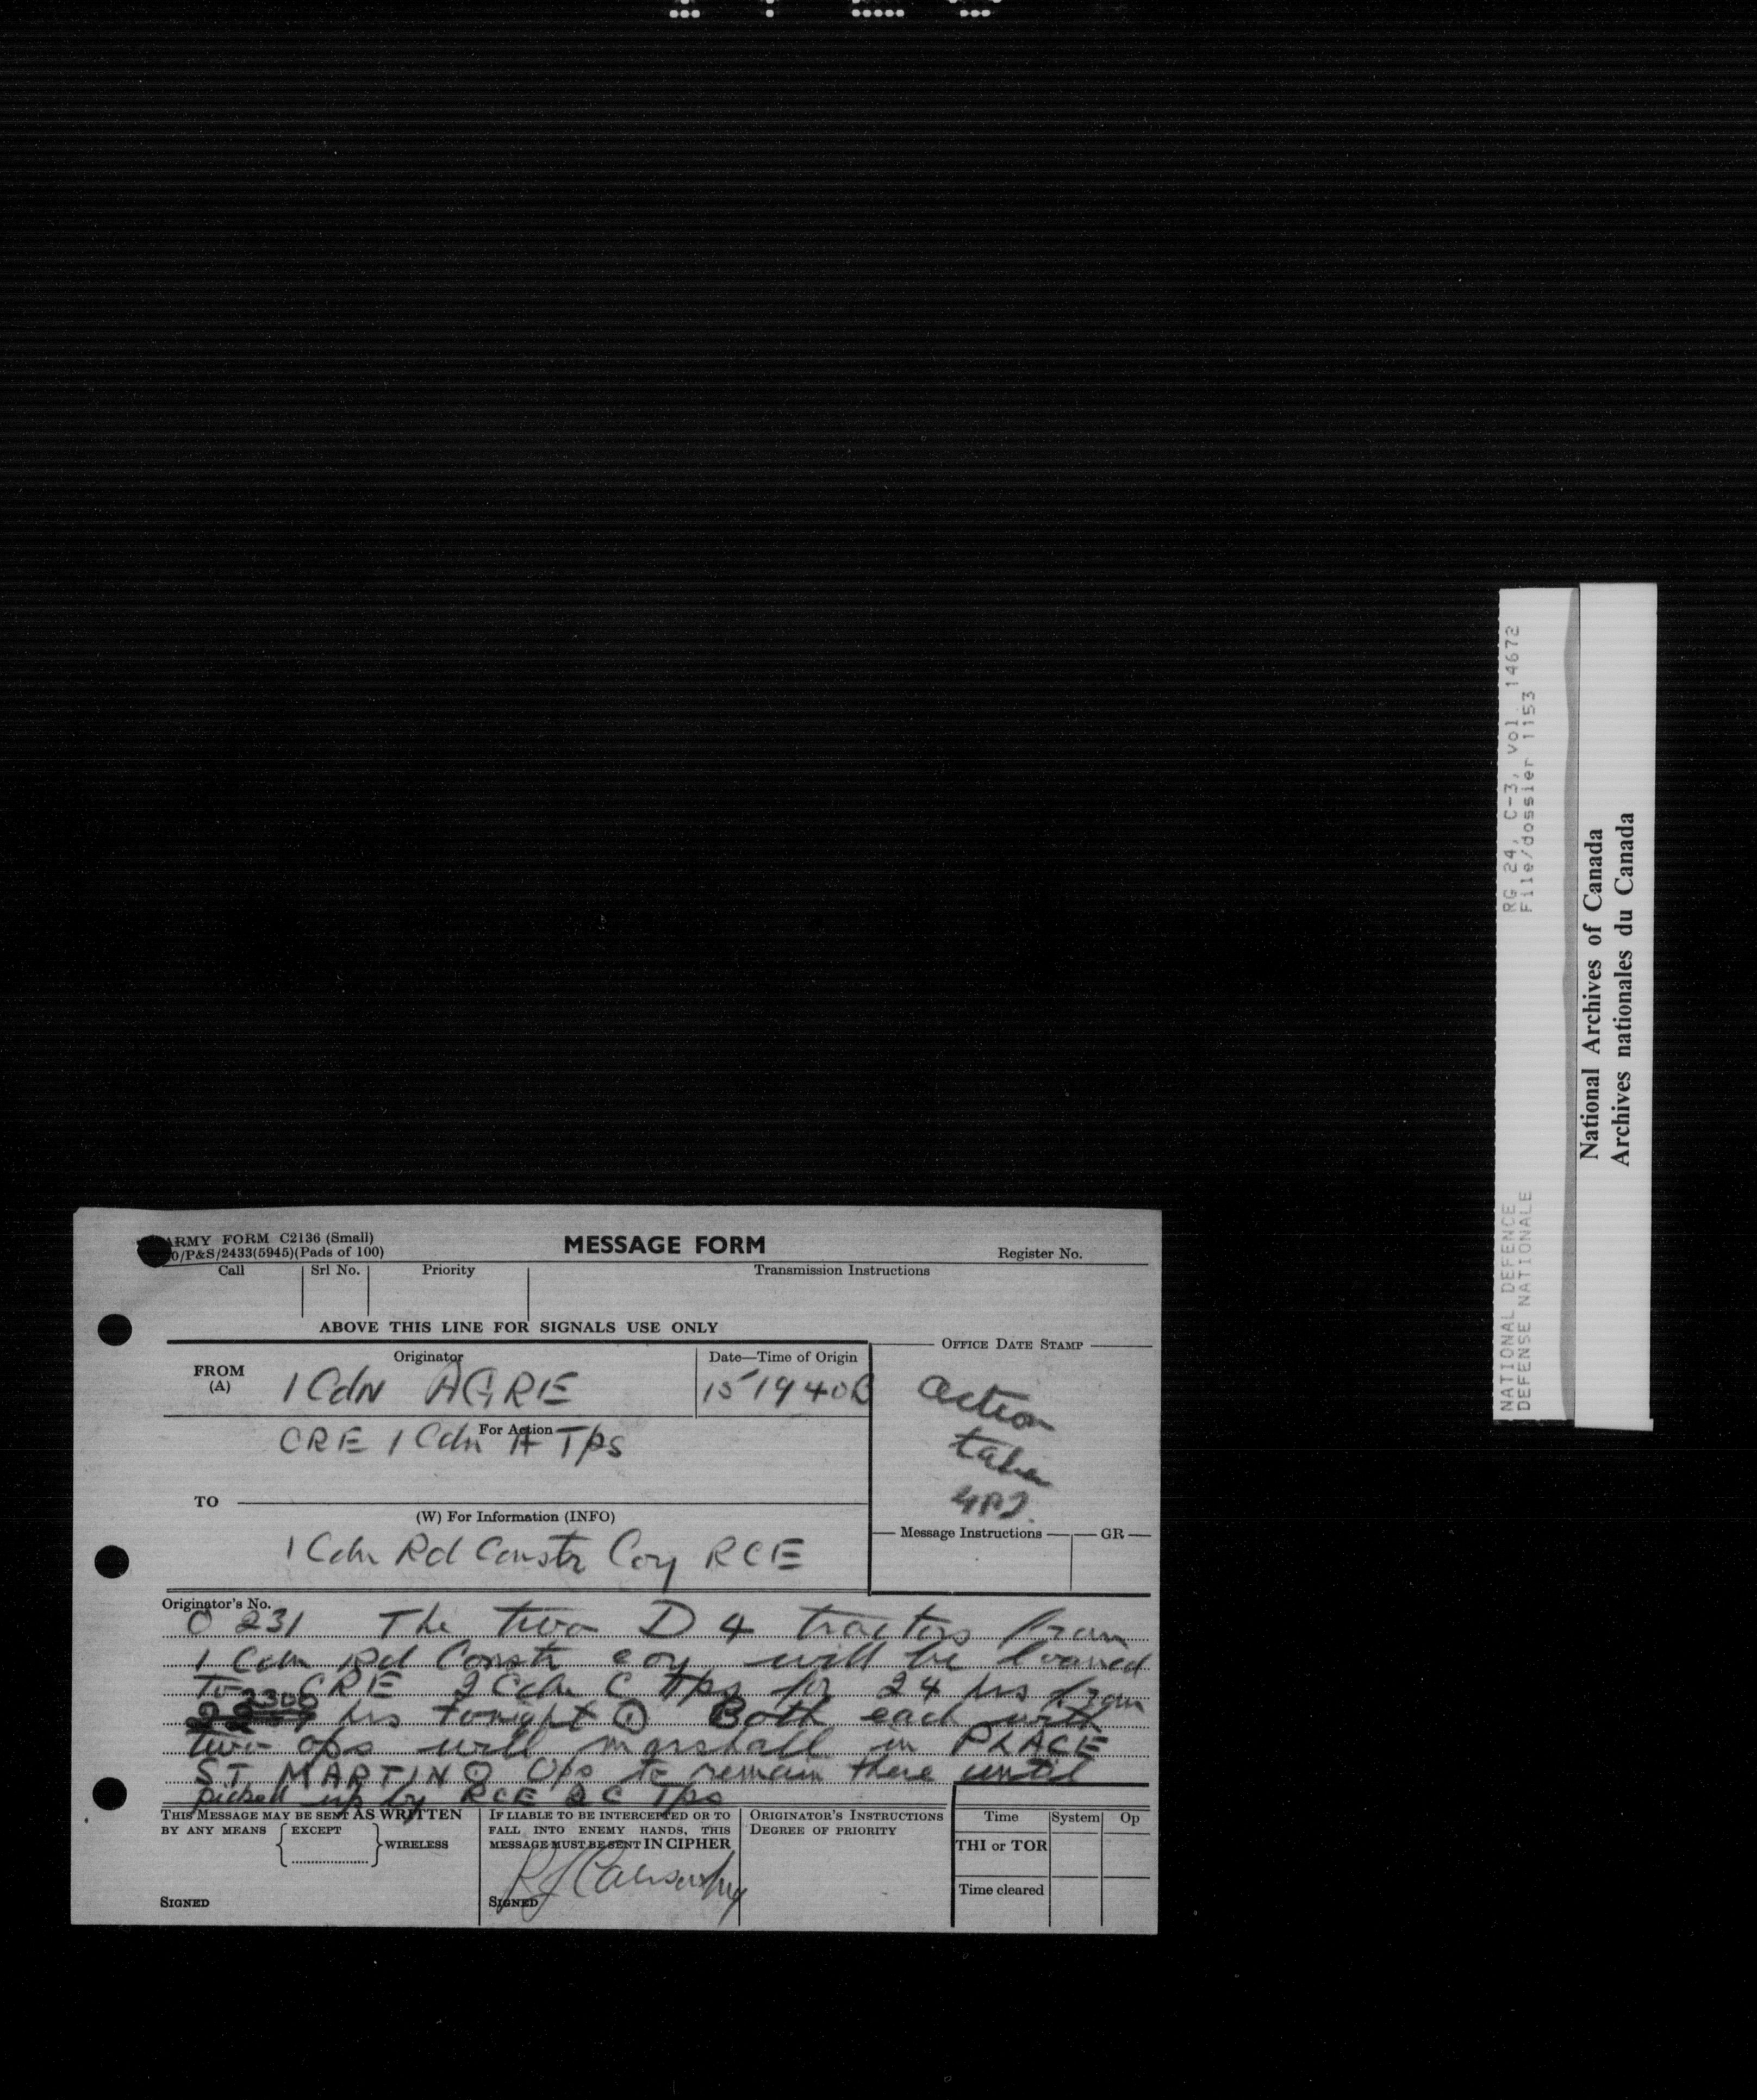 ARMY FORM C2136 (Small)
0/P&S/2433(5945)(Pads of 100)
MESSAGE FORM
Register No.
Call Srl No. Priority Transmission Instructions
ABOVE THIS LINE FOR SIGNALS USE ONLY
OFFICE DATE STAMP
FROM (A)
Originator
1 Cdn AGRE
Date—Time of Origin
151940B
action
taken
For Action
CRE 1 Cdn A Tps
TO
(W) For Information (INFO)
1 Cdn Rd Constr Coy RCE
Message Instructions GR
Originator's No.
O 231 The two D 4 tractors from
1 Cdn Rd Constr coy will be loaned
to CRE 2 Cdn C Tps for 24 hrs from
2300 hrs tonight (.) Both each with
two ops will marshall in PLACE
ST MARTIN (.) Ops to remain there until
picked up by RCE 2 C Tps
THIS MESSAGE MAY BE SENT AS WRITTEN
BY ANY MEANS EXCEPT WIRELESS
SIGNED
IF LIABLE TO BE INTERCEPTED OR TO
FALL INTO ENEMY HANDS, THIS
MESSAGE MUST BE SENT IN CIPHER
SIGNED
ORIGINATOR'S INSTRUCTIONS
DEGREE OF PRIORITY
Time System Op
THI or TOR
Time cleared
RG 24, C-3, vol. 14672
File/dossier 1153
NATIONAL DEFENCE
DEFENSE NATIONALE
National Archives of Canada
Archives nationales du Canada